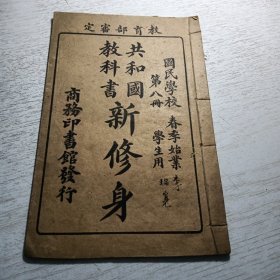 教育部審定
國民學校
春季始業
學生用
第八冊
共和國
教科書
新修身
商務印書館發行